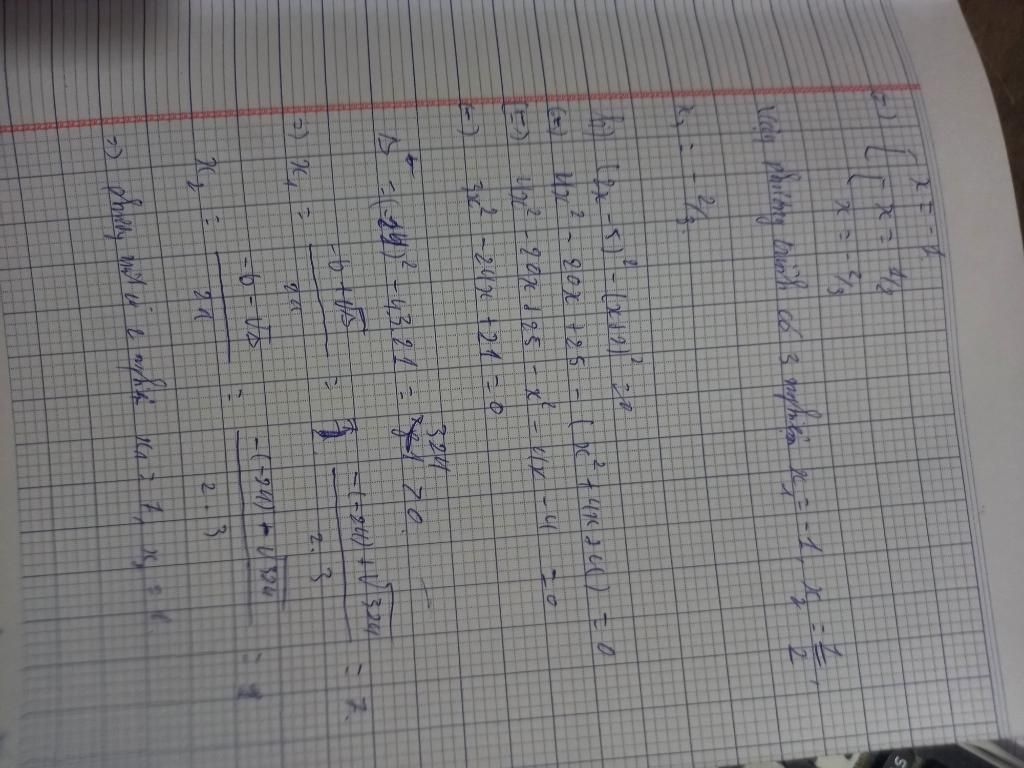 =) [ x = -1
[ x = 1/2
[ x = -2/3
Vậy phương trình có 3 nghiệm x₁ = -1, x₂ = 1/2,
x₃ = -2/3
b) (2x - 5)² - (x+2)² = 0
(=) 4x² - 20x + 25 - (x² + 4x + 4) = 0
(=) 4x² - 20x + 25 - x² - 4x - 4 = 0
(=) 3x² - 24x + 21 = 0
Δ = (-24)² - 4.3.21 = 324 > 0.
=) x₁ = (-b + √Δ)/2a = (-(-24) + √324)/2.3 = 7.
x₂ = (-b - √Δ)/2a = (-(-24) - √324)/2.3 = 1
=) phương trình có 2 nghiệm x₁ = 7, x₂ = 1.